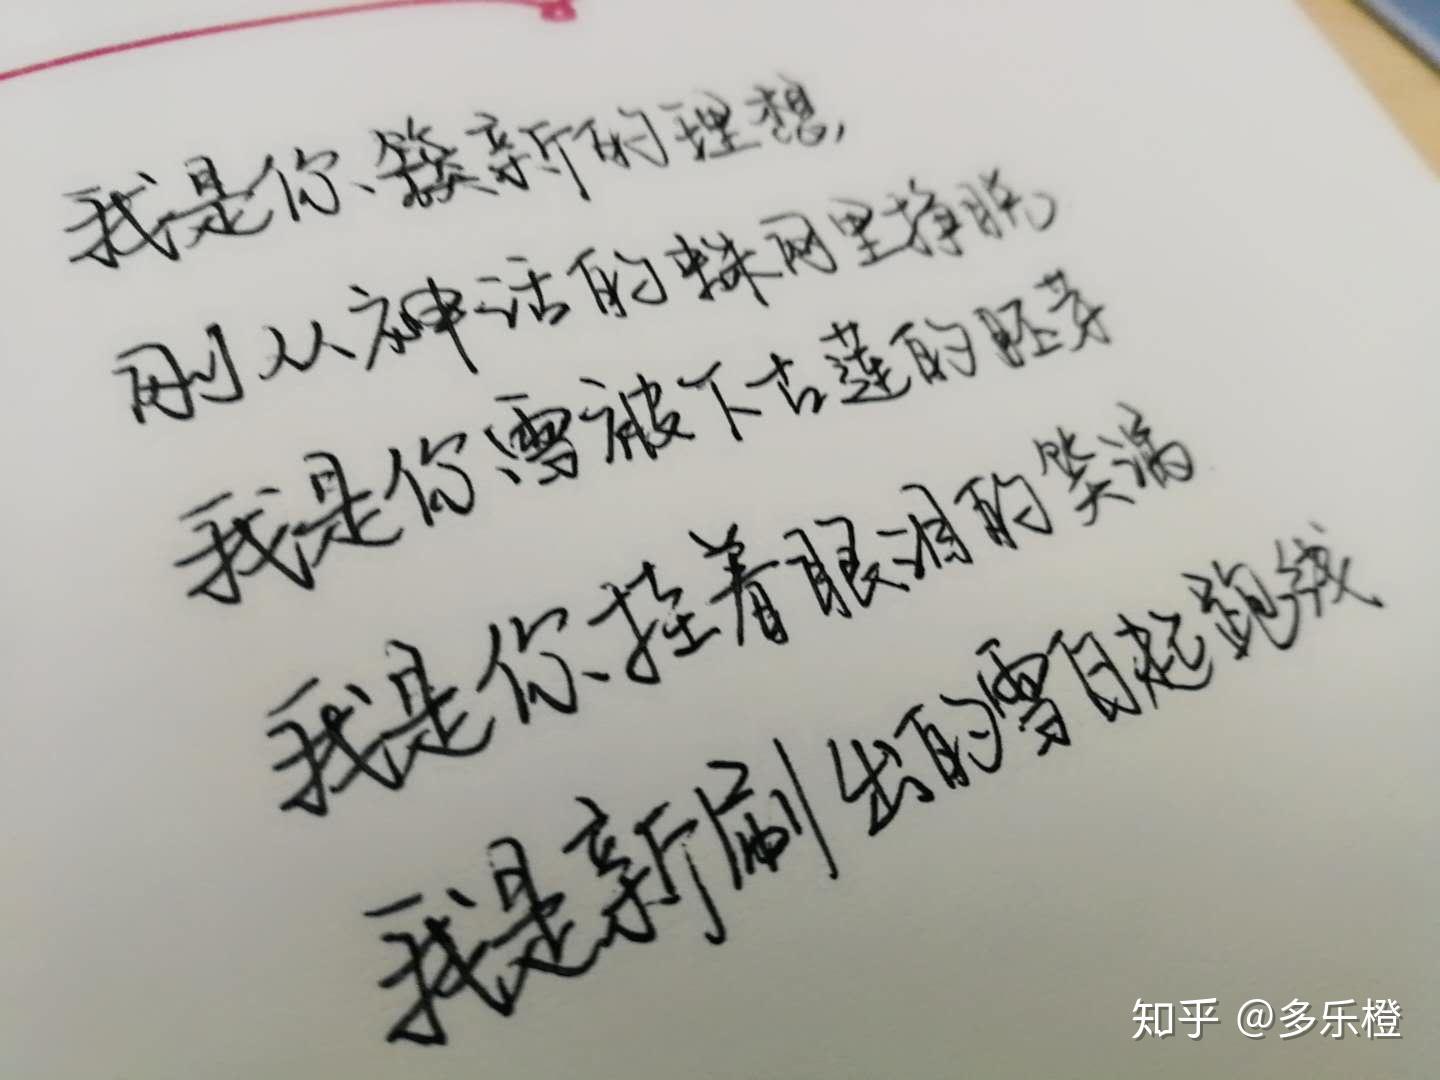 我是你簇新的理想,
刚从神话的蛛网里挣脱
我是你雪被下古莲的胚芽
我是你挂着眼泪的笑涡
我是新刷出的雪白起跑线
知乎 @多乐橙